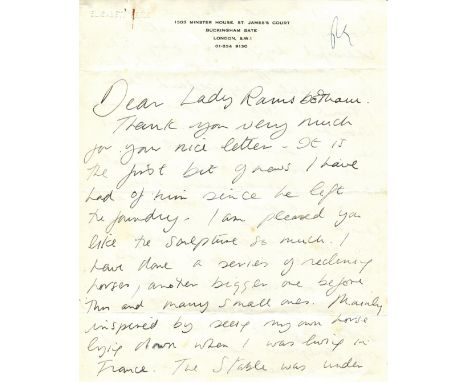 1503 MINSTER HOUSE, ST. JAMES'S COURT
BUCKINGHAM GATE
LONDON, S.W.1
01-834 9130
Dear Lady Ramsbotham.
Thank you very much
for your nice letter - It is
the first bit of news I have
had of him since he left
the foundry. I am pleased you
like the sculpture so much. I
have done a series of reclining
horses, another bigger one before
this and many small ones. Mainly
inspired by seeing my own horse
lying down when I was living in
France. The Stable was under